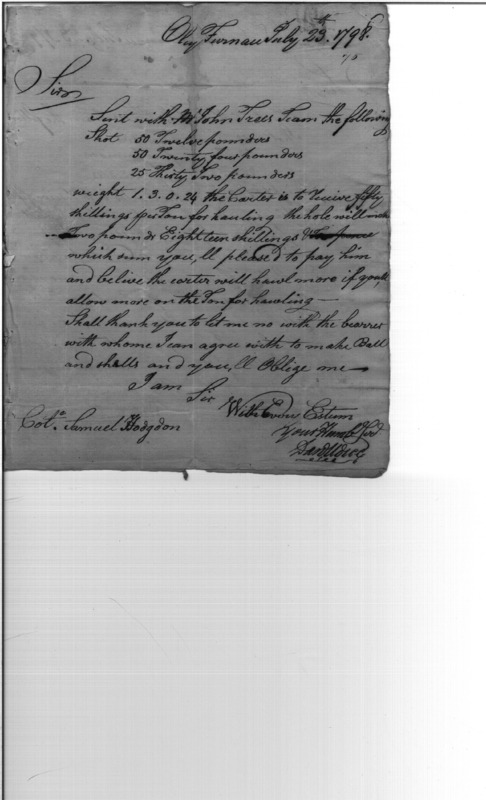 Oley Furnau July 23th. 1798.
Sir
Sent with Mr John Trees Team the following
Shot 50 Twelve pounders
50 Twenty four pounders
25 Thirty Two pounders
weight 1.3.0.24 the Carter is to Receive fifty
shillings per Ton for hauling the hole will make
Two pounds Eighteen shillings &
which sum you,ll please to pay him
and belive the carter will hawl more if you,ll
allow more on the Ton for hawling —
Shall thank you to let me no with the bearer
with whome I can agree with to make Ball
and shells and you,ll Oblige me —
I am
Sir
With Every Esteem
Your Humble
Col. Samuel Hodgdon